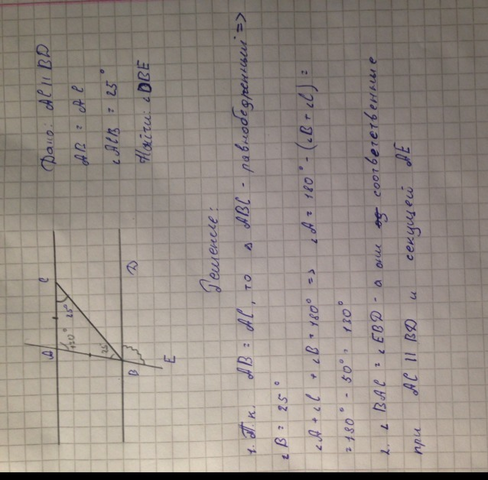 Дано: AC || BD
AB = AC
∠ACB = 25°
Найти: ∠DBE
A
C
130°
25°
25°
B
D
E
Решение:
1. Т.к. AB = AC, то △ ABC - равнобедренный =>
∠B = 25°
∠A + ∠C + ∠B = 180° => ∠A = 180° - (∠B + ∠C) =
= 180° - 50° = 130°
2. ∠ BAC = ∠EBD - а они соответственные
при AC || BD и секущей AE